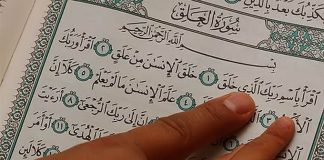 بَعْدُ بِالدِّ
سُورَةُ العَلَقِ
بِسْمِ اللَّهِ الرَّحْمَٰنِ الرَّحِيمِ
اقْرَأْ بِاسْمِ رَبِّكَ الَّذِي خَلَقَ ١ خَلَقَ الْإِنسَٰنَ مِنْ عَلَقٍ ٢ اقْرَأْ وَرَبُّكَ
٣ عَلَّمَ الْإِنسَٰنَ مَا لَمْ يَعْلَمْ ٥ كَلَّا إِنَّ
إِنَّ إِلَىٰ رَبِّكَ الرُّجْعَىٰ ٨ أَرَءَيْتَ
الْهُدَىٰ ١١ أَوْ أَمَرَ